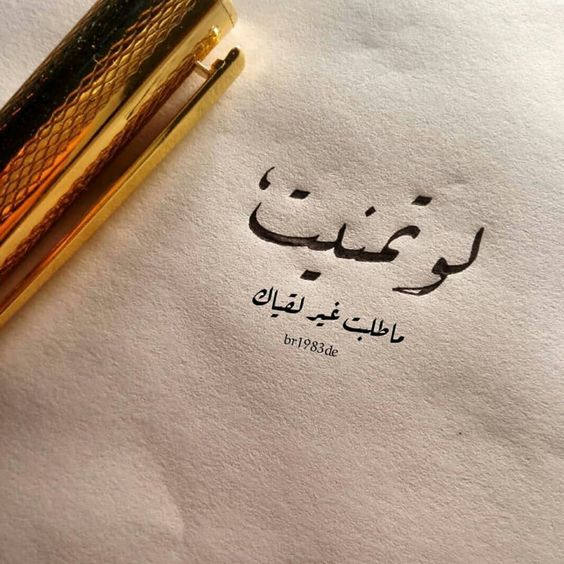 لو تمنيت،
ما طلبت غير لقياك
br1983de